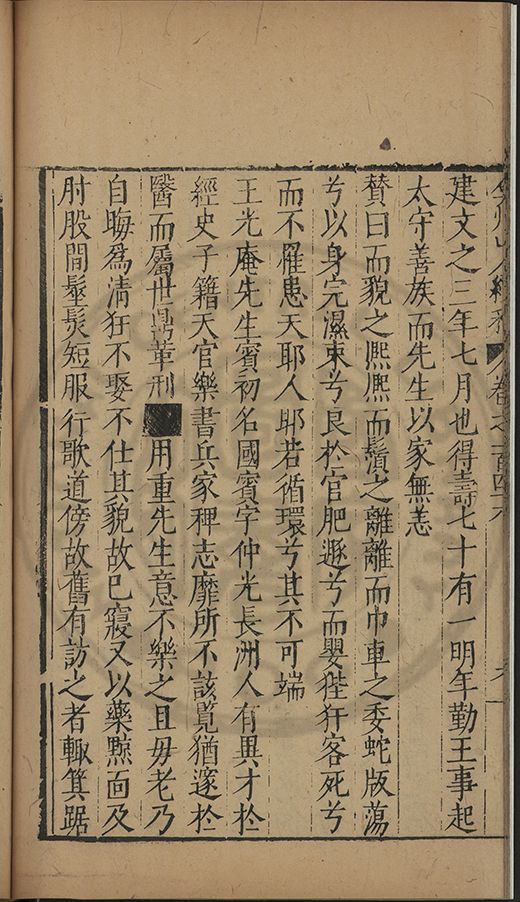 建文之三年七月也得壽七十有一明年勤王事起
太守善族而先生以家無恙
贊曰而貌之熙熙而鬚之離離而巾車之委蛇版蕩
兮以身完濕束兮艮於官肥遯兮而嬰狴犴客死兮
而不罹患天耶人耶若循環兮其不可端
王光庵先生賓初名國賓字仲光長洲人有異才於
經史子籍天官樂書兵家稗志靡所不該覧猶邃於
醫而屬世鼎革刑用重先生意不樂之且毋老乃
自晦爲清狂不娶不仕其貌故巳寢又以藥黥面及
肘股間髽髮短服行歌道傍故舊有訪之者輙箕踞